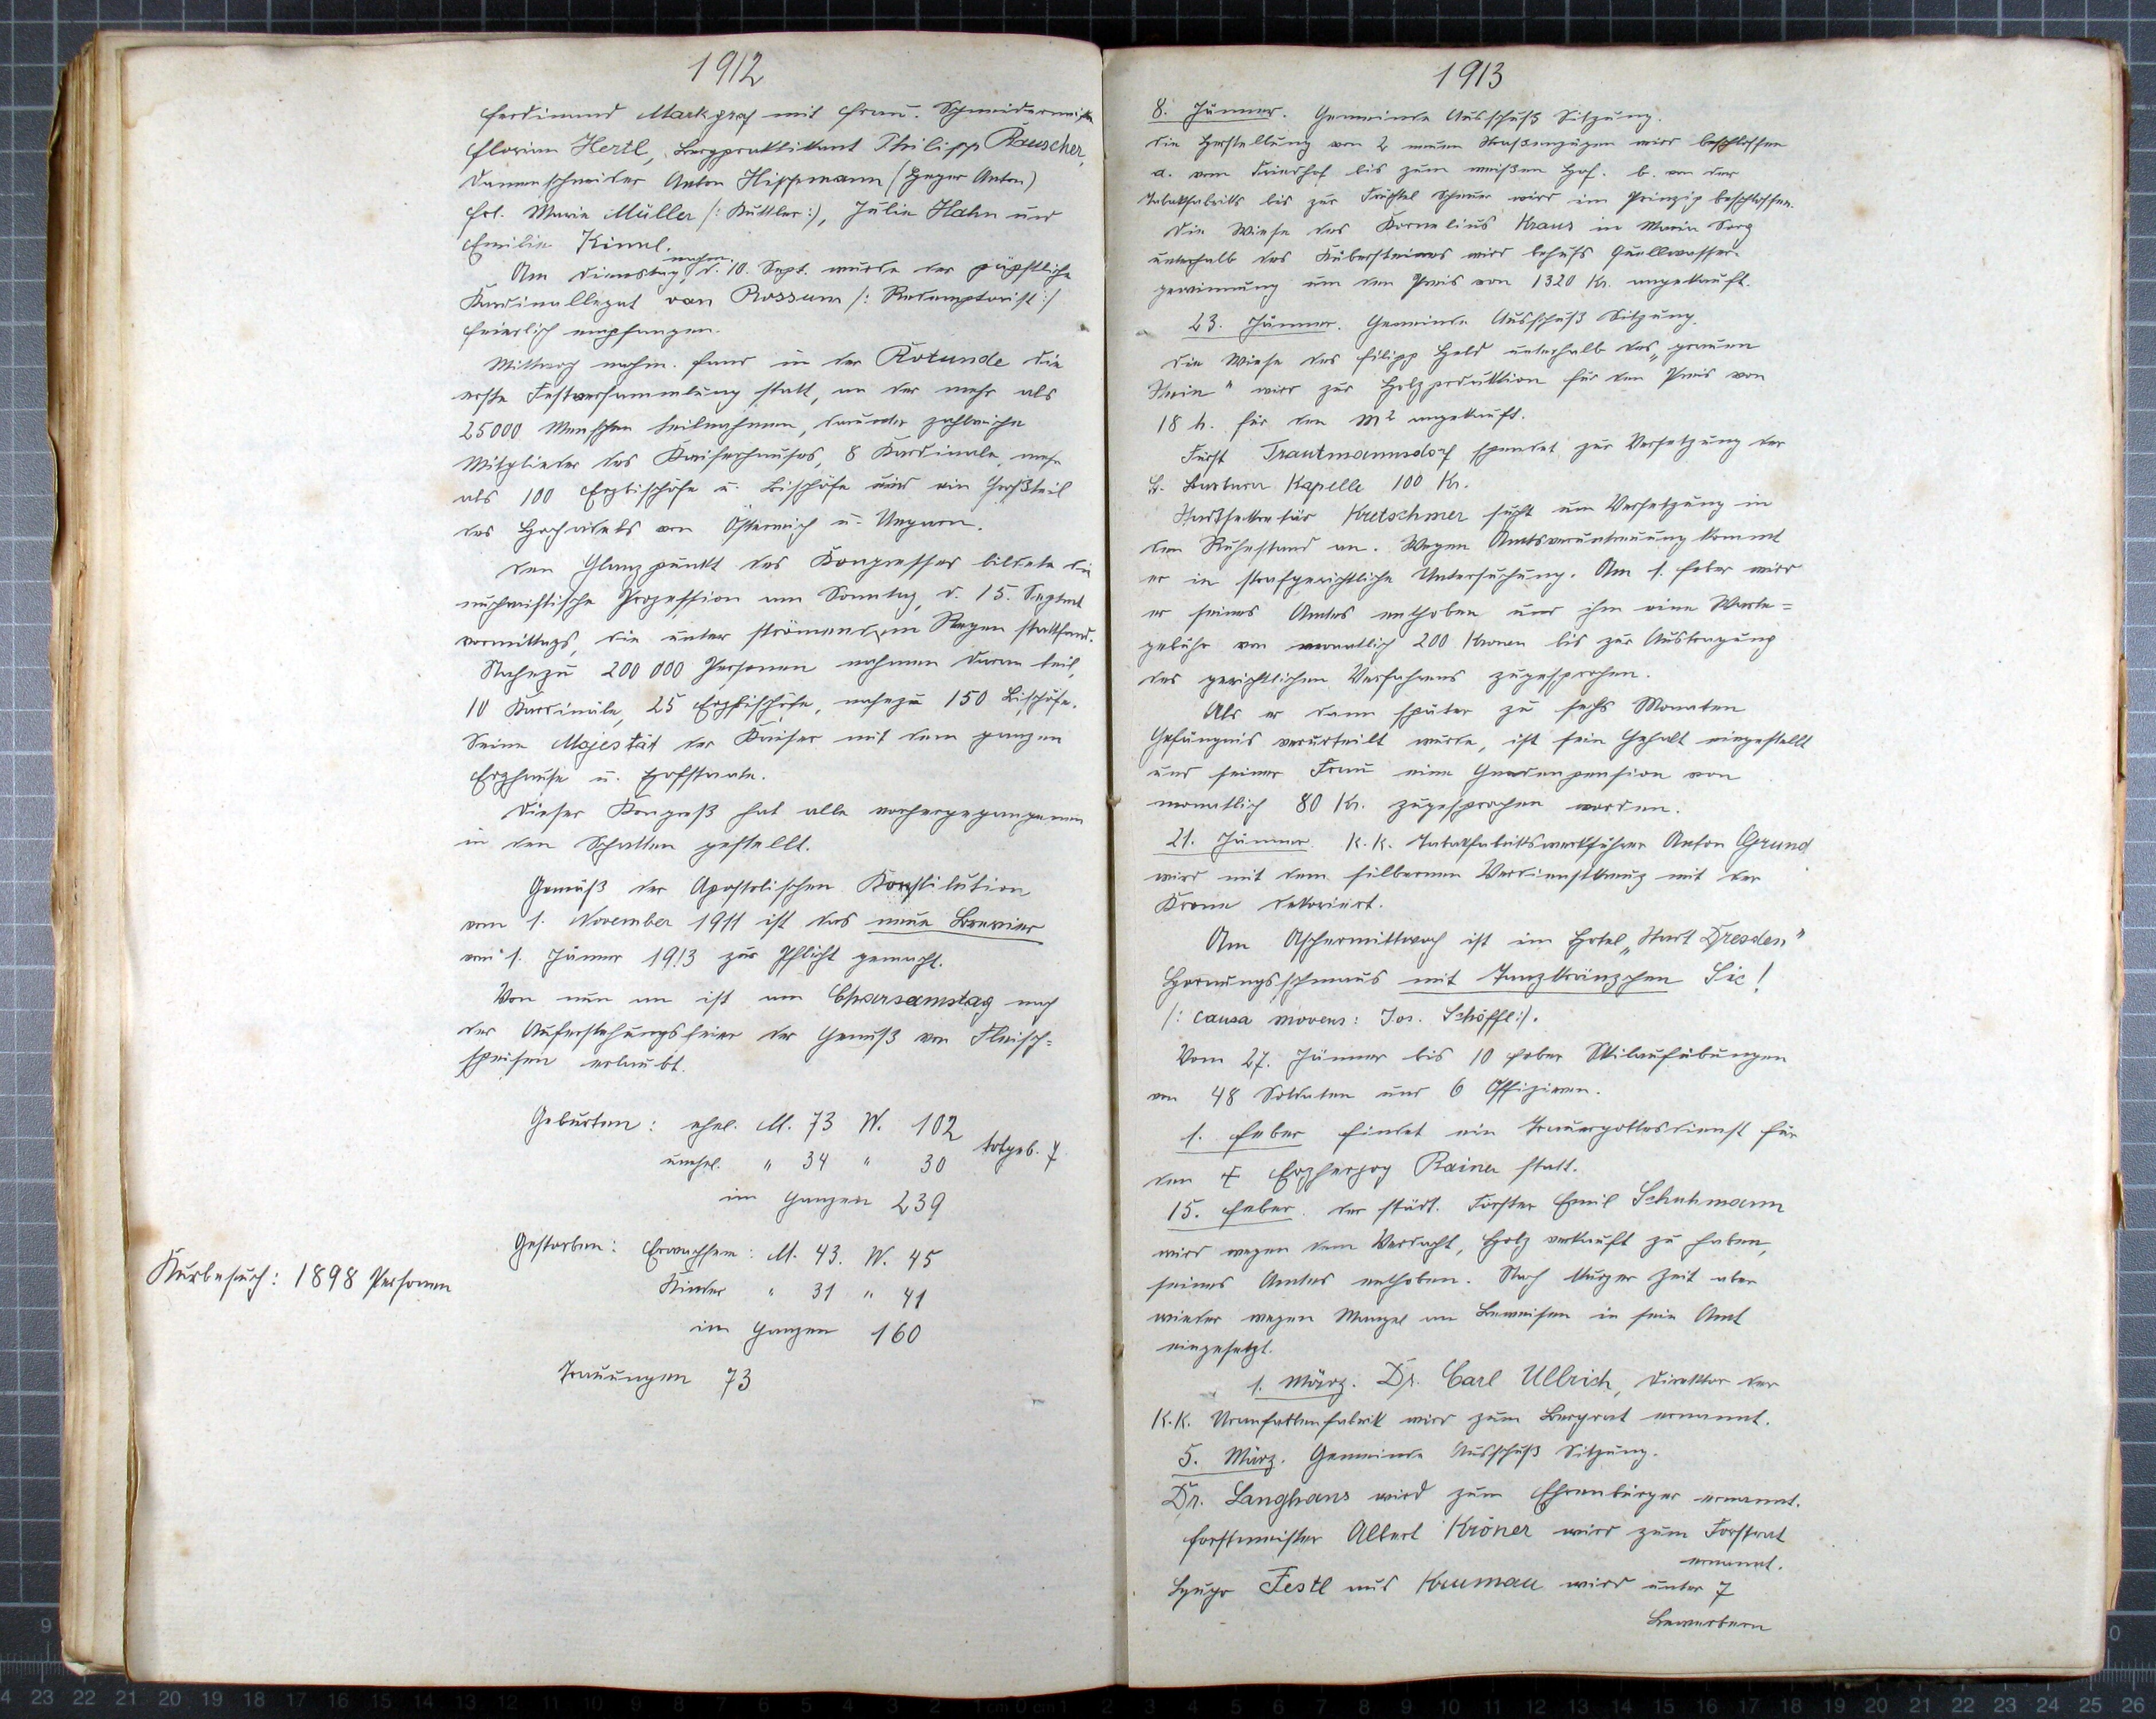 1912
Ferdinand Markgraf mit Frau. Schneidermeister
Florian Hertl, Bergpraktikant Philipp Rauscher,
Damenschneider Anton Hippmann (Heger Anton)
Frl. Marie Müller /: Kuttler :/, Julie Hahn und
Emilie Kimml.
Am Dienstag, nachm. d. 10. Sept. wurde der päpstliche
Kardinallegat van Rossum /: Redemptorist :/
feierlich empfangen.
Mittwoch nachm. fand in der Rotunde die
erste Festversammlung statt, an der mehr als
25000 Menschen teilnahmen, darunter zahlreiche
Mitglieder des Kaiserhauses, 8 Kardinale, mehr
als 100 Erzbischöfe u. Bischöfe und ein Großteil
des Hochadels von Österreich u. Ungarn.
Den Glanzpunkt des Kongresses bildete die
eucharistische Prozession am Sonntag, d. 15. Septemb
vormittags, die unter strömendem Regen stattfand.
Nahezu 200 000 Personen nahmen daran teil,
10 Kardinäle, 25 Erzbischöfe, nahezu 150 Bischöfe.
Seine Majestät der Kaiser mit dem ganzen
Erzhause u. Hofstaate.
Dieser Kongreß hat alle vorhergegangenen
in den Schatten gestellt.
Gemäß der Apostolischen Konstitution
vom 1. November 1911 ist das neue Brevier
vom 1. Jänner 1913 zur Pflicht gemacht.
Von nun an ist am Charsamstag nach
der Auferstehungsfeier der Genuß von Fleisch=
speisen erlaubt.
Geburten: ehel. M. 73 W. 102
unehel. " 34 " 30 totgeb. 7
im Ganzen 239
Gestorben: Erwachsene: M. 43. W. 45
Kinder " 31 " 41
im Ganzen 160
Trauungen 73
Kurbesuch: 1898 Personen
1913
8. Jänner. Gemeinde Ausschuß Sitzung.
Die Herstellung von 2 neuen Straßenzügen wird beschlossen
a. vom Friedhof bis zum weißen Hof. b. von der
Tabakfabrik bis zur Scheuer wird im Prinzip beschlossen.
Die Wiese des Kornelius Kraus in Maria Sorg
unterhalb des Hübersteines wird behufs Quellwasser-
gewinnung um den Preis von 1320 Kr. angekauft.
23. Jänner. Gemeinde Ausschuß Sitzung.
Die Wiese des Filipp Held unterhalb des „grauen
Stein" wird zur Holzproduktion für den Preis von
18 h. für den m² angekauft.
Fürst Trautmannsdorf spendet zur Versetzung der
St. Barbara Kapelle 100 Kr.
Stadtsekretär Kretschmer sucht um Versetzung in
den Ruhestand an. Wegen Amtsveruntreuung kommt
er in strafgerichtliche Untersuchung. Am 1. Feber wird
er seines Amtes enthoben und ihm eine Warte=
gebühr von monatlich 200 Kronen bis zur Austragung
des gerichtlichen Verfahrens zugesprochen.
Als er dann später zu sechs Monaten
Gefängnis verurteilt wurde, ist sein Gehalt eingestellt
und seiner Frau eine Gnadenpension von
monatlich 80 Kr. zugesprochen worden.
21. Jänner K.K. Tabakfabrikswerkführer Anton Grund
wird mit dem silbernen Verdienstkreuz mit der
Krone dekoriert.
Am Aschermittwoch ist im Hotel „Stadt Dresden"
Hornungsschmaus mit Tanzkränzchen Sic!
/: causa movens: Jos. Schöffl :/.
Vom 27. Jänner bis 10 Feber Skilaufübungen
von 48 Soldaten und 6 Offizieren.
1. Feber findet ein Trauergottesdienst für
den † Erzherzog Rainer statt.
15. Feber. Der städt. Förster Emil Schuhmann
wird wegen dem Verdacht, Holz verkauft zu haben,
seines Amtes enthoben. Nach kurzer Zeit aber
wieder wegen Mangel an Beweisen in sein Amt
eingesetzt.
1. März. Dr. Carl Ullrich, Direktor der
K.K. Uranfarbenfabrik wird zum Bergrat ernannt.
5. März. Gemeinde Ausschuß Sitzung.
Dr. Langhans wird zum Ehrenbürger ernannt.
Forstmeister Albert Kröner wird zum Forstrat
ernannt.
Festl aus Krumau wird unter 7
Bewerbern